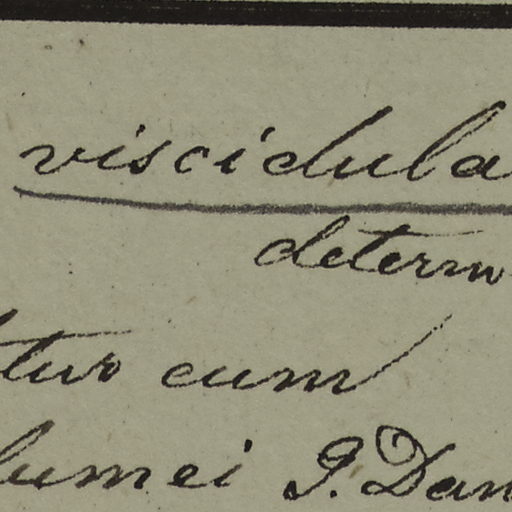 viscidula
determ
tur cum
lumei J. Dan